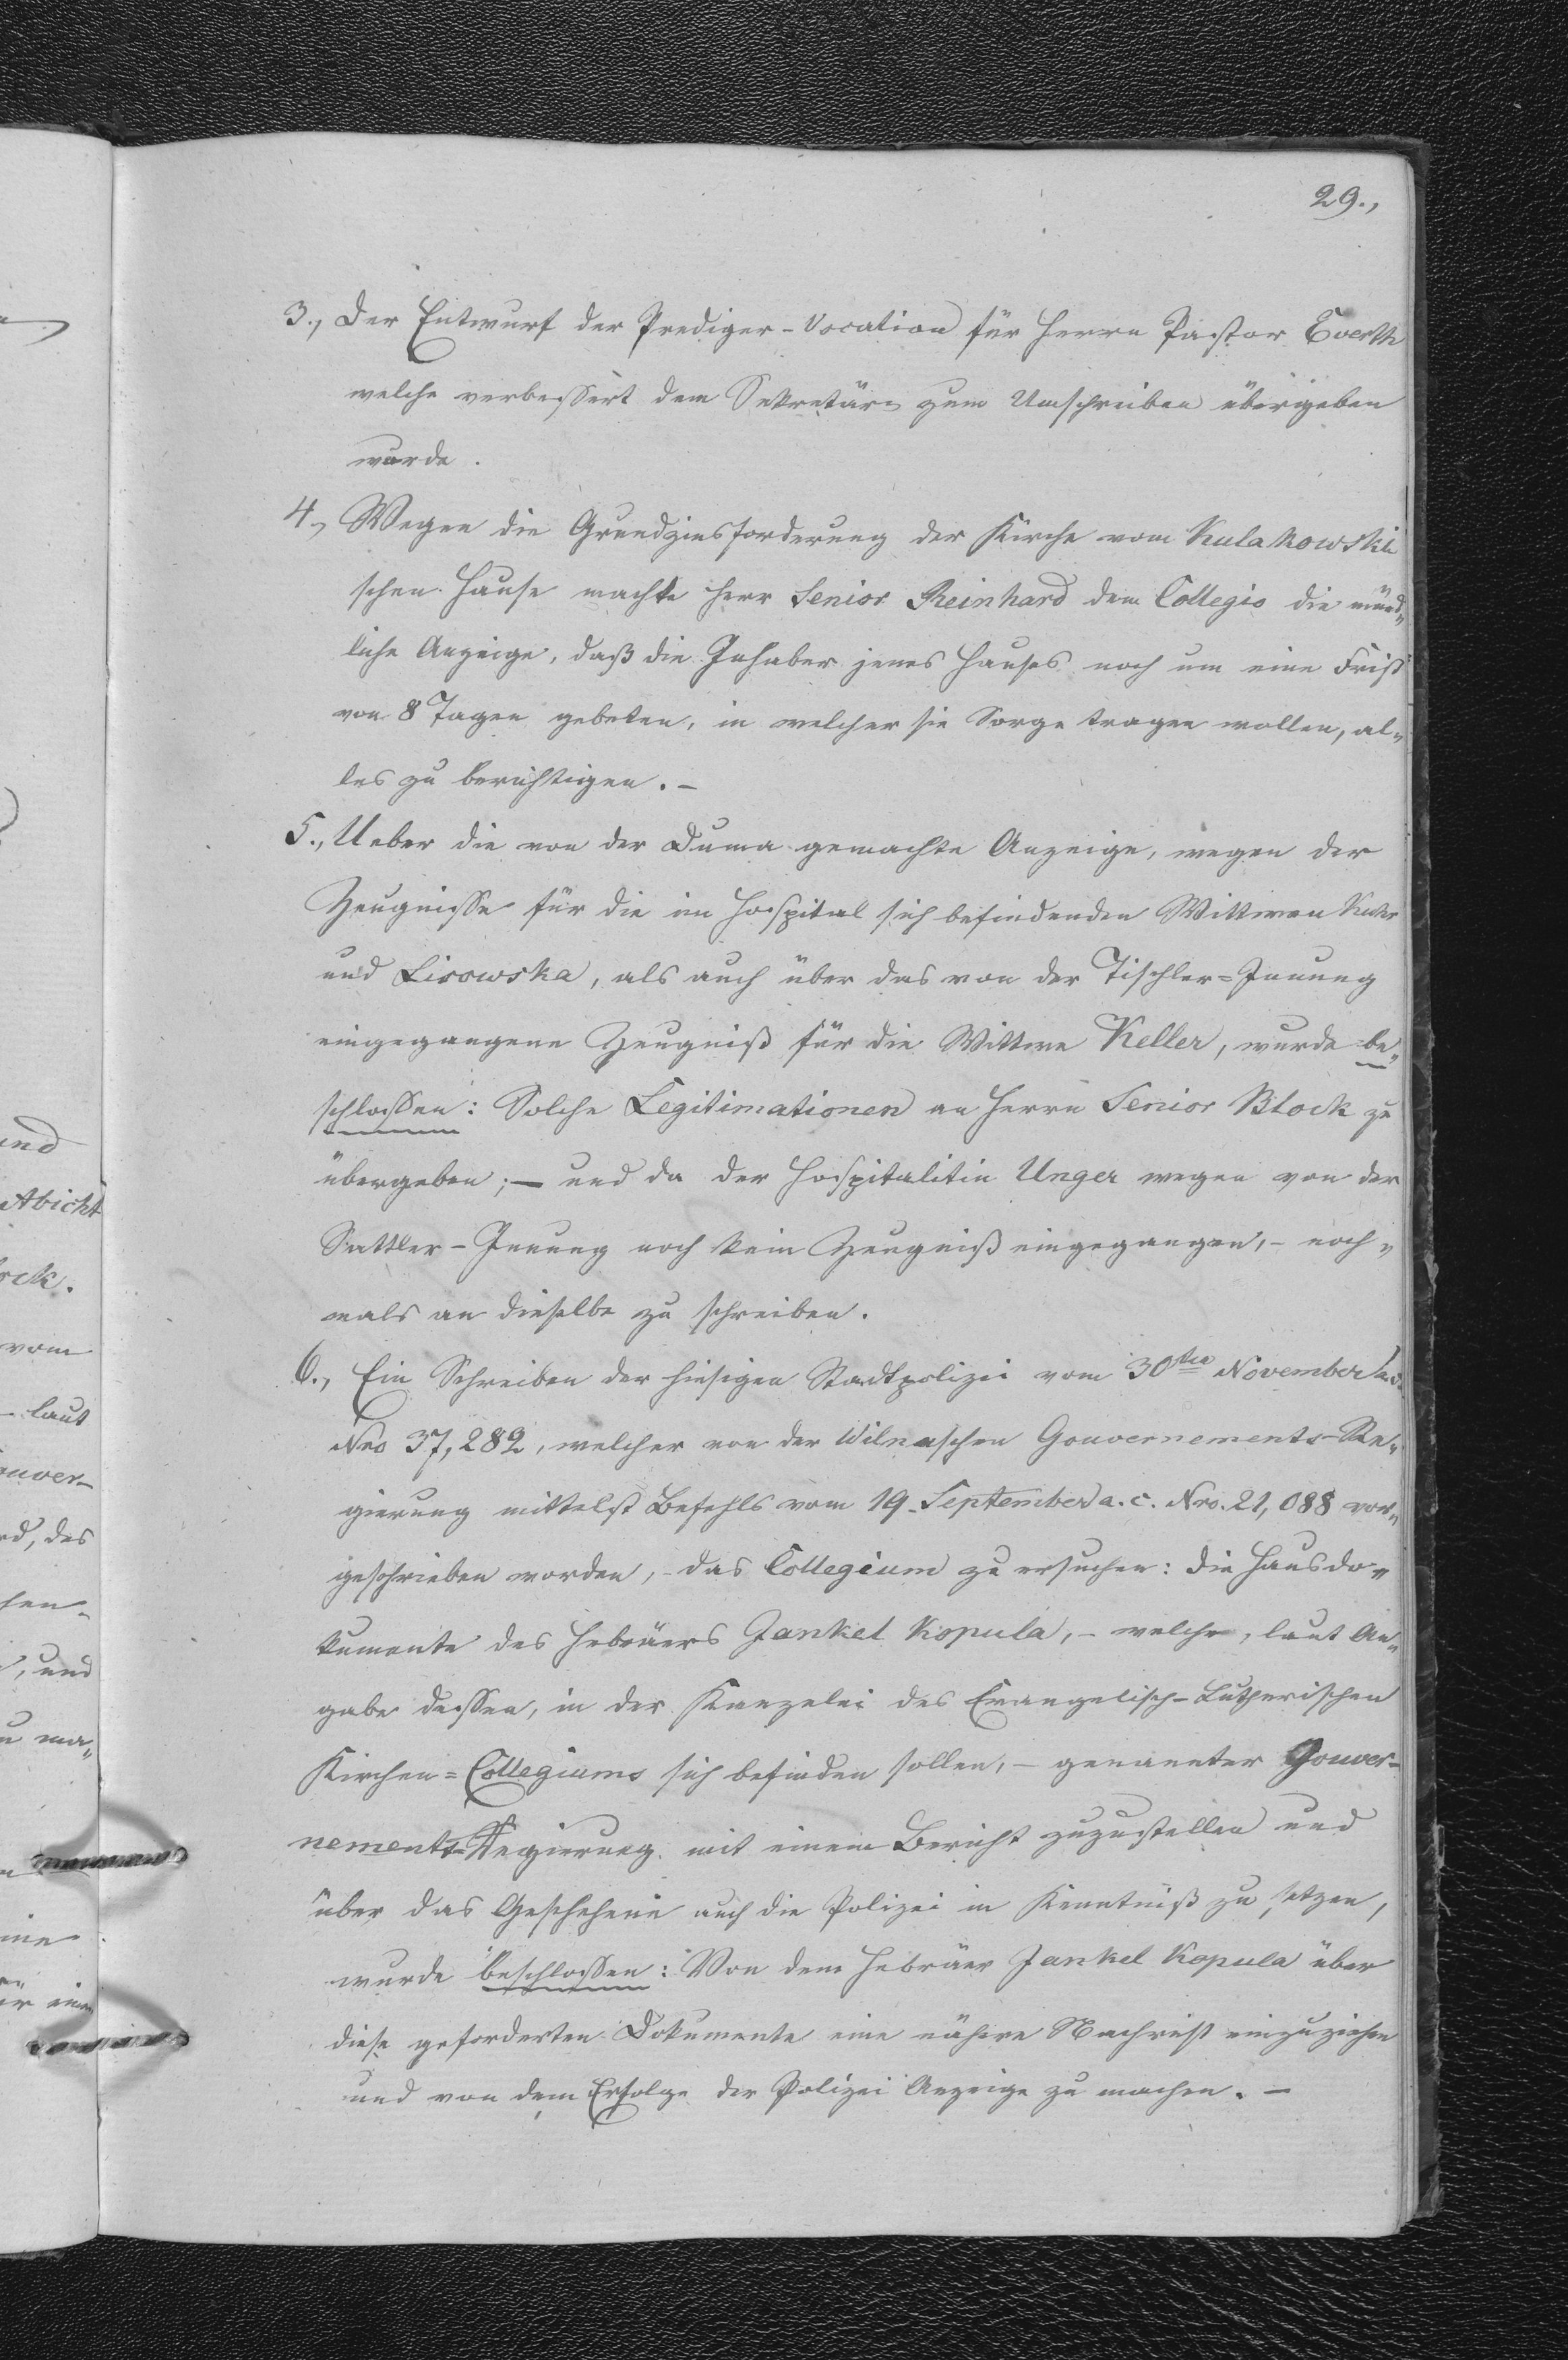 29.,
3., Der Entwurf der Prediger-Vocation für Herrn Pastor Everth
welche verbessert dem Sekretär zum Umschreiben übergeben
wurde.
4., Wegen die Grundzinsforderung der Kirche vom Kulakowski
schen Hause machte Herr Senior Reinhard dem Collegio die münd„
liche Anzeige, daß die Inhaber jenes Hauses noch um eine Frist
von 8 Tagen gebeten, in welcher sie Sorge tragen wollen, al„
les zu berichtigen. –
5., Ueber die von der Duma gemachte Anzeige, wegen der
Zeugnisse für die im Hospital sich befindenden Wittwen
und Lisowska, als auch über das von der Tischler=Innung
eingegangene Zeugniß für die Wittwe Keller, wurde be„
schlossen: Solche Legitimationen an Herrn Senior Block zu
übergeben; – und da der Hospitalitin Unger wegen von der
Sattler-Innung noch kein Zeugniß eingegangen, – noch„
mals an dieselbe zu schreiben.
6., Ein Schreiben der hiesigen Stadtpolizei vom 30ten November a.c.
Nro 37,282, welcher von der Wilnaschen Gouvernements-Re„
gierung mittelst Befehls vom 19. September a. c. Nro. 21,088 vor„
geschrieben worden, – das Collegium zu ersuchen: die Hausdo„
kumente des Hebräers Jankel Kopula, – welche, laut An„
gabe dessen, in der Kanzelei des Evangelisch-Lutherischen
Kirchen=Collegiums sich befinden sollen, – genannter Gouver-
nements-Regierung mit einem Bericht zuzustellen und
über das Geschehene auch die Polizei in Kenntniß zu setzen,
wurde beschlossen: Von dem Hebräer Jankel Kopula über
diese geforderten Dokumente eine nähere Nachricht einzuziehen
und von dem Erfolge der Polizei Anzeige zu machen. –